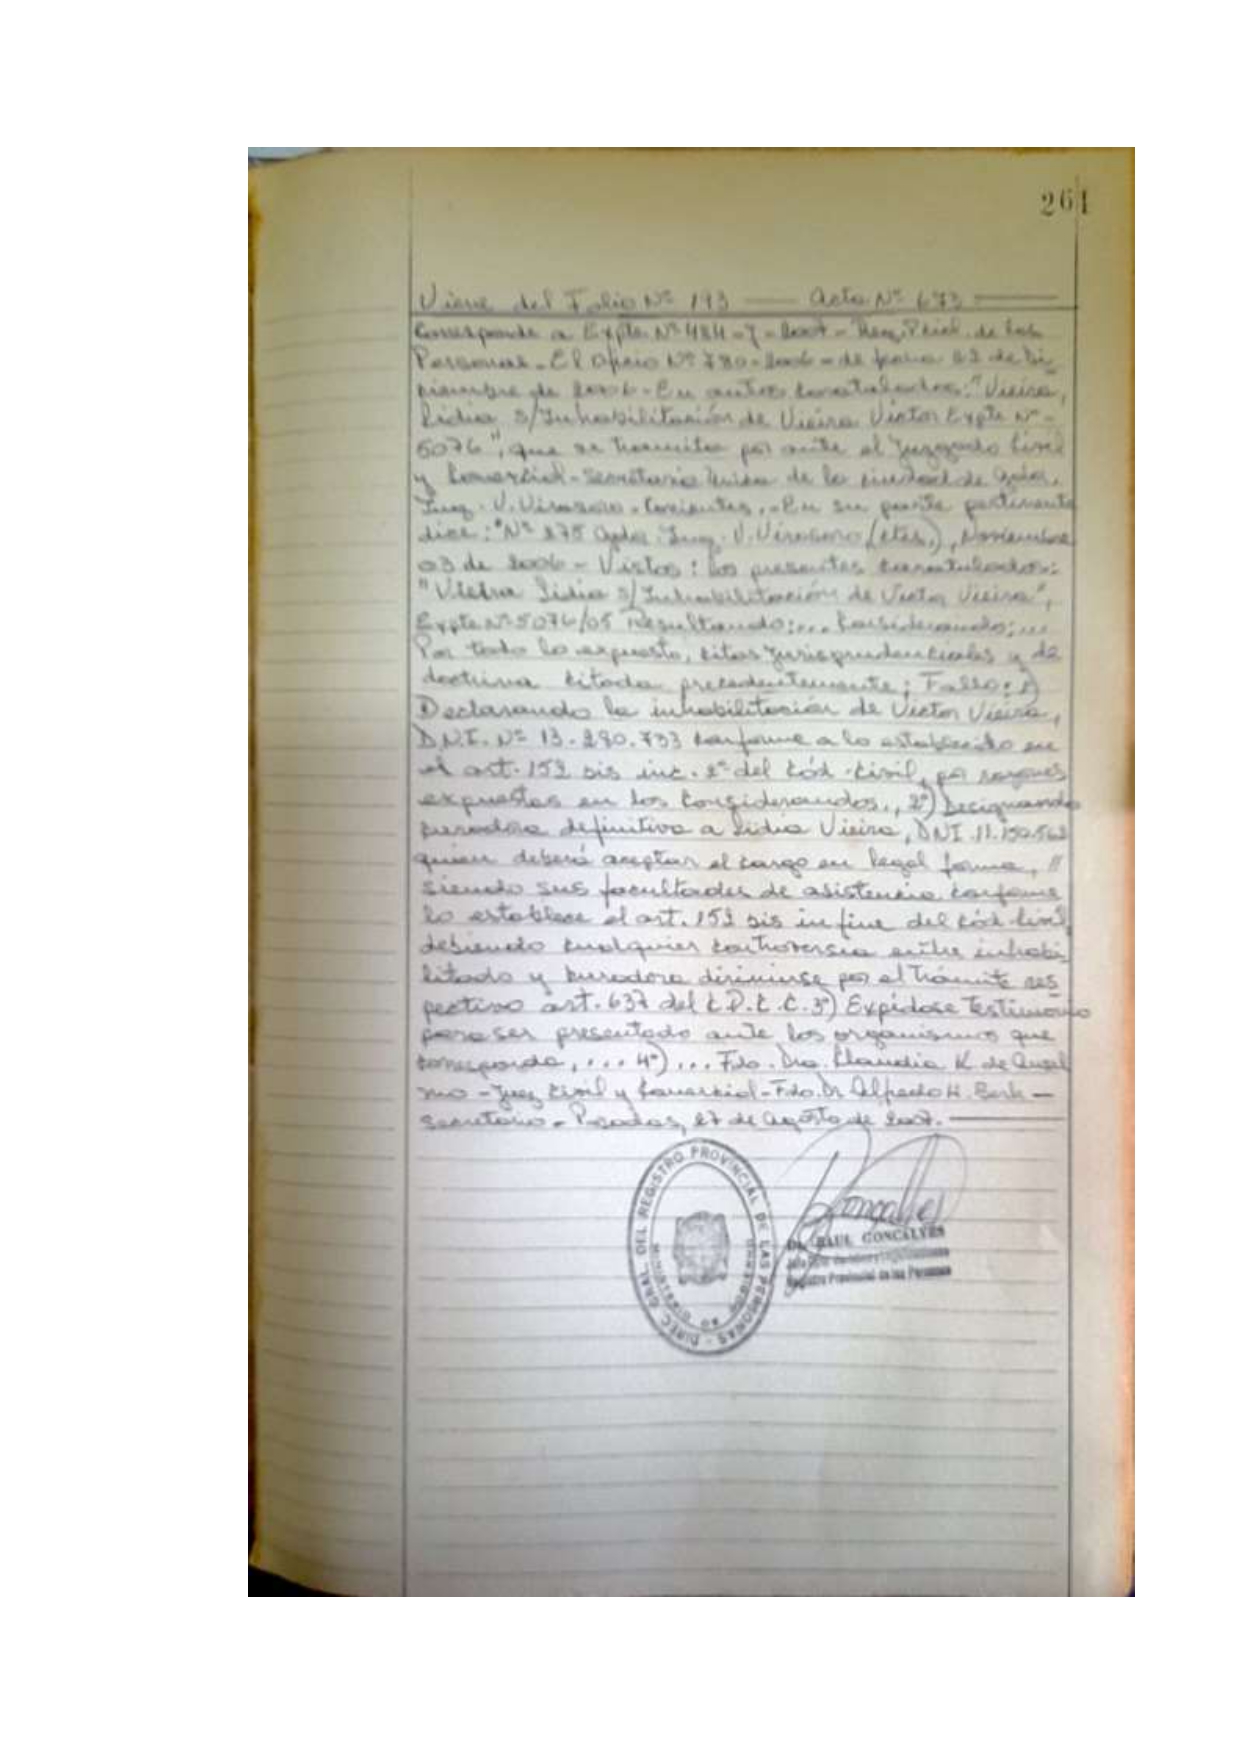 261
Viene del Folio Nº 193 — Acta Nº 673 —
Corresponde a Expte. Nº 484-7-2007- Reg. Pcial. de las
Personas - El Oficio Nº 780-2006 - de fecha 22 de Di-
ciembre de 2006 - En autos caratulados: "Vieira,
Lidia s/Inhabilitación de Vieira Victor Expte Nº -
5076", que se tramita por ante el Juzgado Civil
y Comercial - Secretaria Unica de la ciudad de Gdor.
Ing. V. Virasoro - Corrientes. - En su parte pertinente
dice: "Nº 275 Gdor. Ing. V. Virasoro (Ctes.), Noviembre
03 de 2006 - Vistos: los presentes caratulados:
"Vieira Lidia s/Inhabilitación de Victor Vieira",
Expte Nº 5076/05 Resultando:... Considerando:...
Por todo lo expuesto, citas jurisprudenciales y de
doctrina citada precedentemente; Fallo:
Declarando la inhabilitación de Victor Vieira,
D.N.I. Nº 13.290.733 conforme a lo establecido en
el art. 152 bis inc. 2º del Cód. Civil, por razones
expuestas en los Considerandos., 2º) Designando
curadora definitiva a Lidia Vieira, DNI. 11.150.562
quien deberá aceptar el cargo en legal forma, //
siendo sus facultades de asistencia conforme
lo establece el art. 152 bis in fine del Cód. Civil,
debiendo cualquier controversia entre inhabi-
litado y curadora dirimirse por el trámite res-
pectivo art. 637 del C.P.C.C. 3º) Expídase Testimonio
para ser presentado ante los organismos que
corresponda, ... 4º) ... Fdo. Dra. Claudia K. de Ansel
mo - Juez Civil y Comercial - Fdo. Dr Alfredo H.
Secretario - Posadas, 27 de Agosto de 2007. —
DIREC. GRAL. DEL REGISTRO PROVINCIAL DE LAS PERSONAS
MINISTERIO DE GOBIERNO
Dr. RAUL GONCALVES
Registro Provincial de las Personas